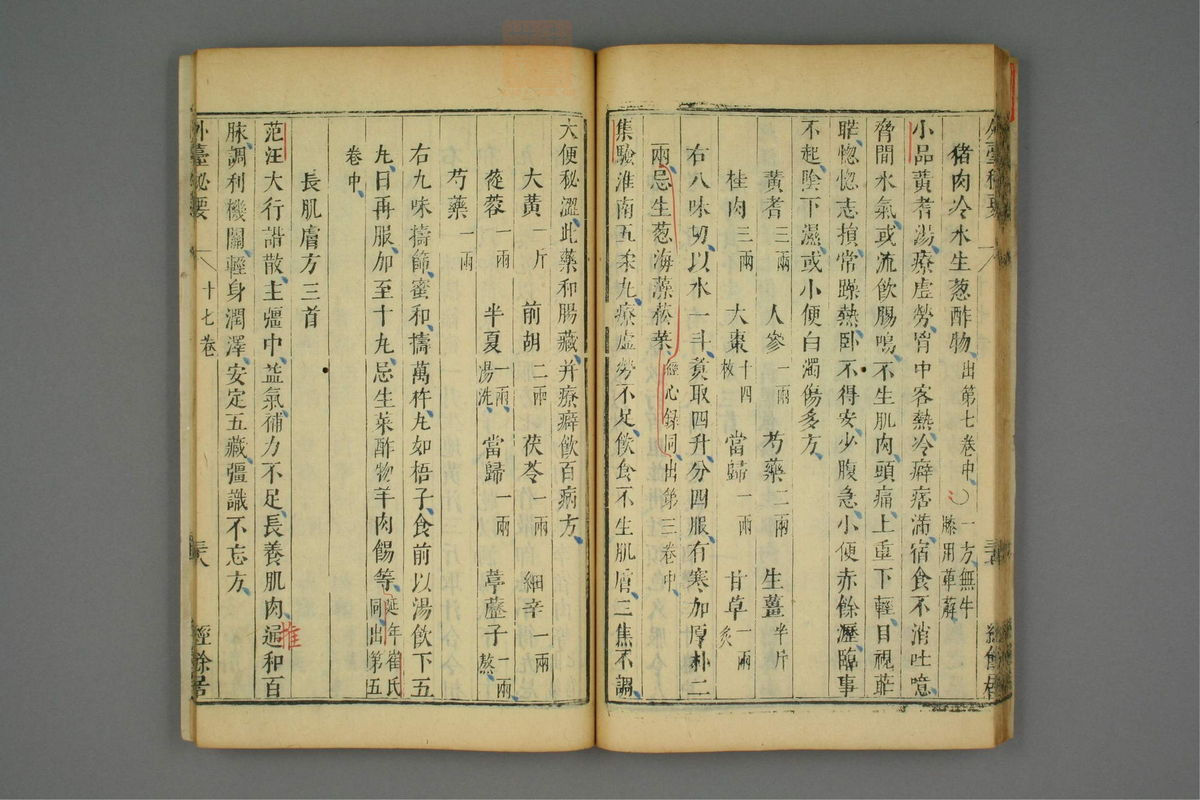 猪肉冷水生葱酢物出第七卷中一方無牛膝用萆薢
小品黃耆湯療虛勞胷中客熱冷癖痞滿宿食不消吐噫
脅間水氣或流飲腸鳴不生肌肉頭痛上重下輕目視䀮
䀮惚惚志損常躁熱卧不得安少腹急小便赤餘瀝臨事
不起陰下濕或小便白濁傷多方
黃耆三兩 人參一兩 芍藥二兩 生薑半斤
桂肉三兩 大棗十四枚 當歸一兩 甘草一兩炙
右八味切以水一斗煑取四升分四服有寒加厚朴二
兩忌生葱海藻菘菜經心録同出第三卷中
集驗淮南五柔丸療虛勞不足飲食不生肌膚三焦不調
大便秘澀此藥和腸藏并療癖飲百病方
大黃一斤 前胡二兩 茯苓一兩 細辛一兩
蓯蓉一兩 半夏一兩湯洗 當歸一兩 葶藶子一兩熬
芍藥一兩
右九味擣篩蜜和擣萬杵丸如梧子食前以湯飲下五
丸日再服加至十丸忌生菜酢物羊肉餳等延年崔氏同出第五
卷中
長肌膚方三首
范汪大行諧散主彊中益氣補力不足長養肌肉通和百
脉調利機關輕身潤澤安定五藏彊識不忘方
外臺秘要 十七卷 經餘居